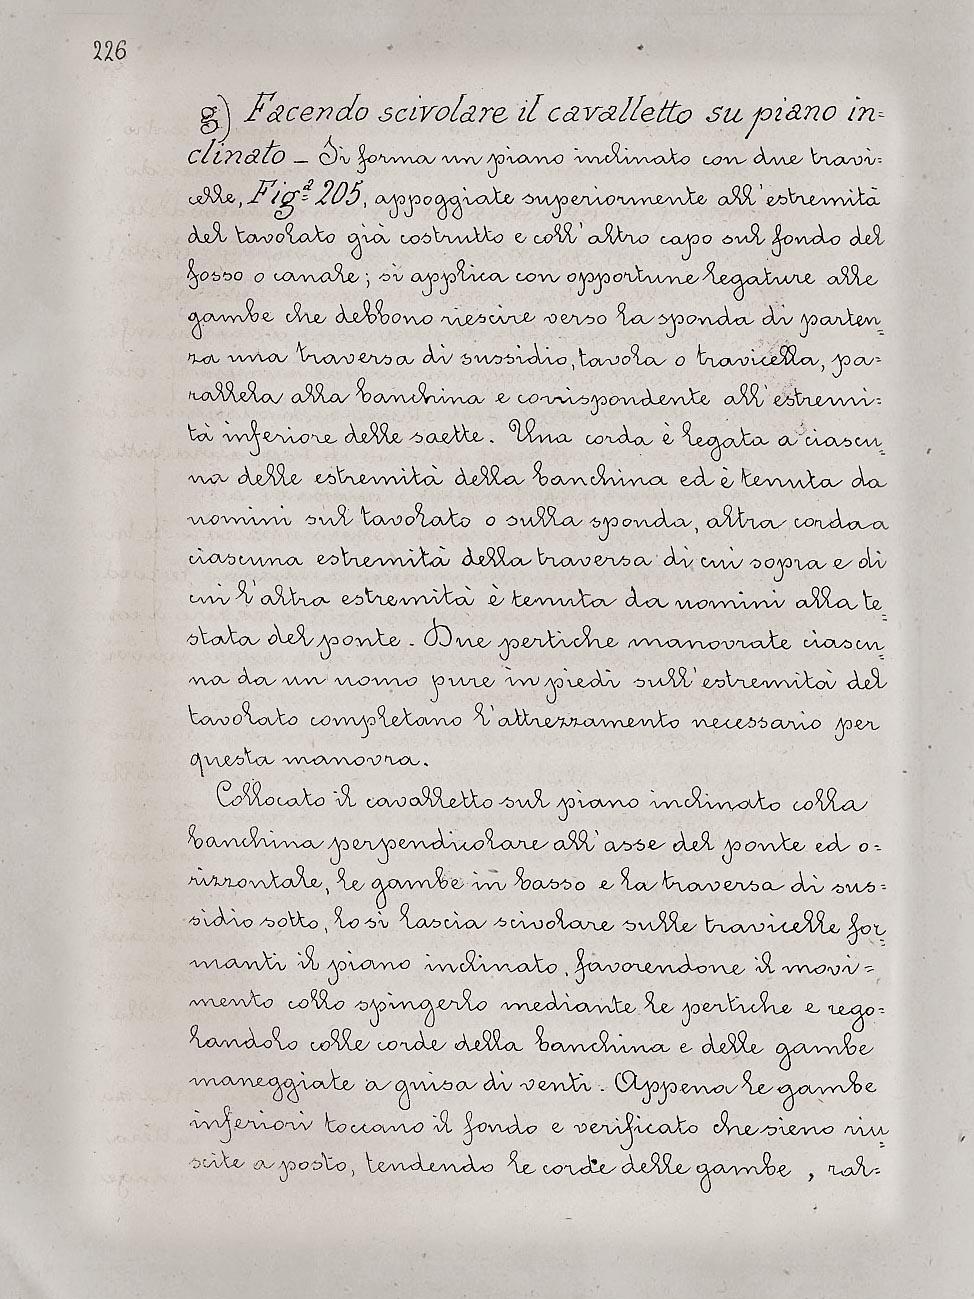 226
g) Facendo scivolare il cavalletto su piano in=
clinato _ Si forma un piano inclinato con due travi=
celle, Figª 205, appoggiate superiormente all'estremità
del tavolato già costrutto e coll'altro capo sul fondo del
fosso o canale; si applica con opportune legature alle
gambe che debbono riescire verso la sponda di parten=
za una traversa di sussidio, tavola o travicella, pa=
rallela alla banchina e corrispondente all'estremi=
tà inferiore delle saette. Una corda è legata a ciascu=
na delle estremità della banchina ed è tenuta da
uomini sul tavolato o sulla sponda, altra corda a
ciascuna estremità della traversa di cui sopra e di
cui l'altra estremità è tenuta da uomini alla te=
stata del ponte. Due pertiche manovrate ciascu=
na da un uomo pure in piedi sull'estremità del
tavolato completano l'attrezzamento necessario per
questa manovra.
Collocato il cavalletto sul piano inclinato colla
banchina perpendicolare all'asse del ponte ed o=
rizzontale, le gambe in basso e la traversa di sus=
sidio sotto, lo si lascia scivolare sulle travicelle for=
manti il piano inclinato, favorendone il movi=
mento collo spingerlo mediante le pertiche e rego=
landolo colle corde della banchina e delle gambe
maneggiate a guisa di venti. Appena le gambe
inferiori toccano il fondo e verificato che sieno riu=
scite a posto, tendendo le corde delle gambe, ral=